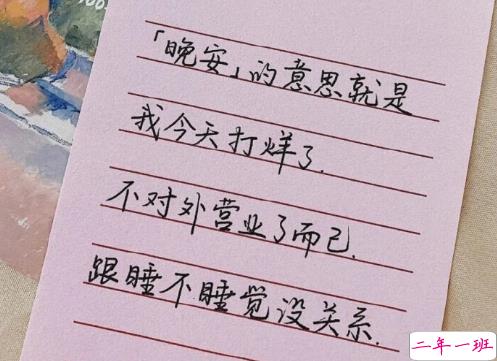 「晚安」的意思就是
我今天打烊了.
不对外营业了而已.
跟睡不睡觉没关系.
二年一班